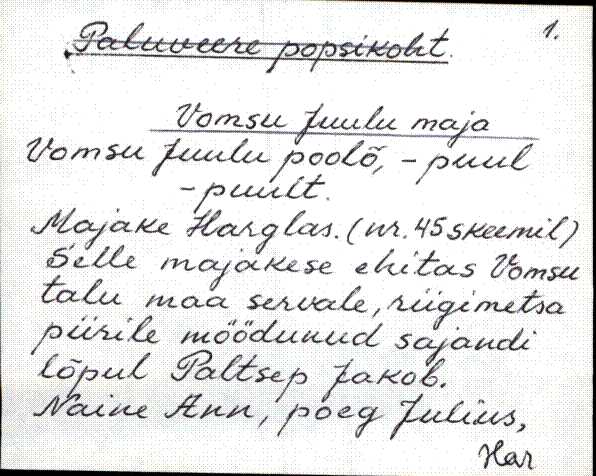 1.
Paluveere popsikoht.
Vomsu Juulu maja
Vomsu Juulu poolõ, - puul
- puult.
Majake Harglas. (nr. 45 skeemil)
Selle majakese ehitas Vomsu
talu maa servale, riigimetsa
piirile möödunud sajandi
lõpul Paltsep Jakob.
Naine Ann, poeg Julius,
Har